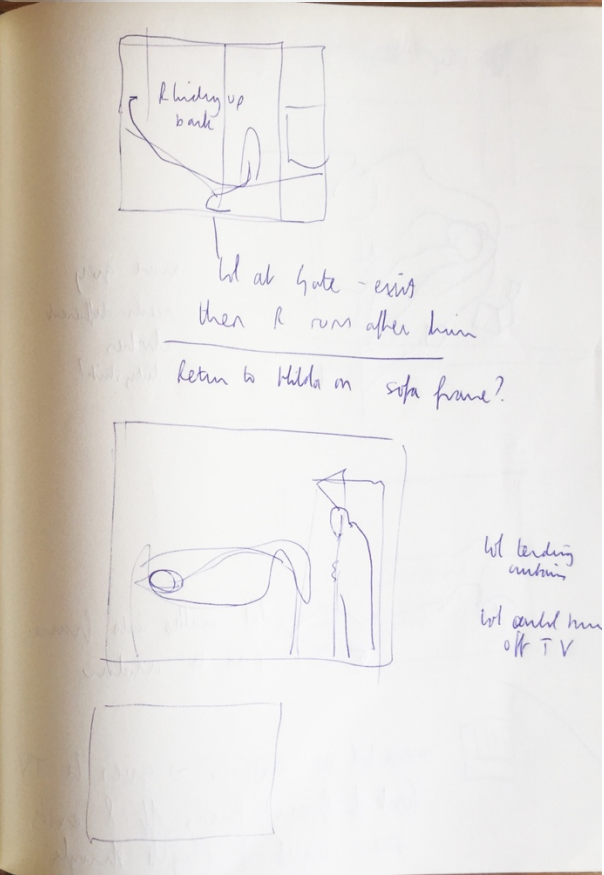 R hiding up
back
Wl at Gate - exit
then R runs after him
Return to Hilda on sofa frame?
Wl tending
curtains
Wl could turn
off TV